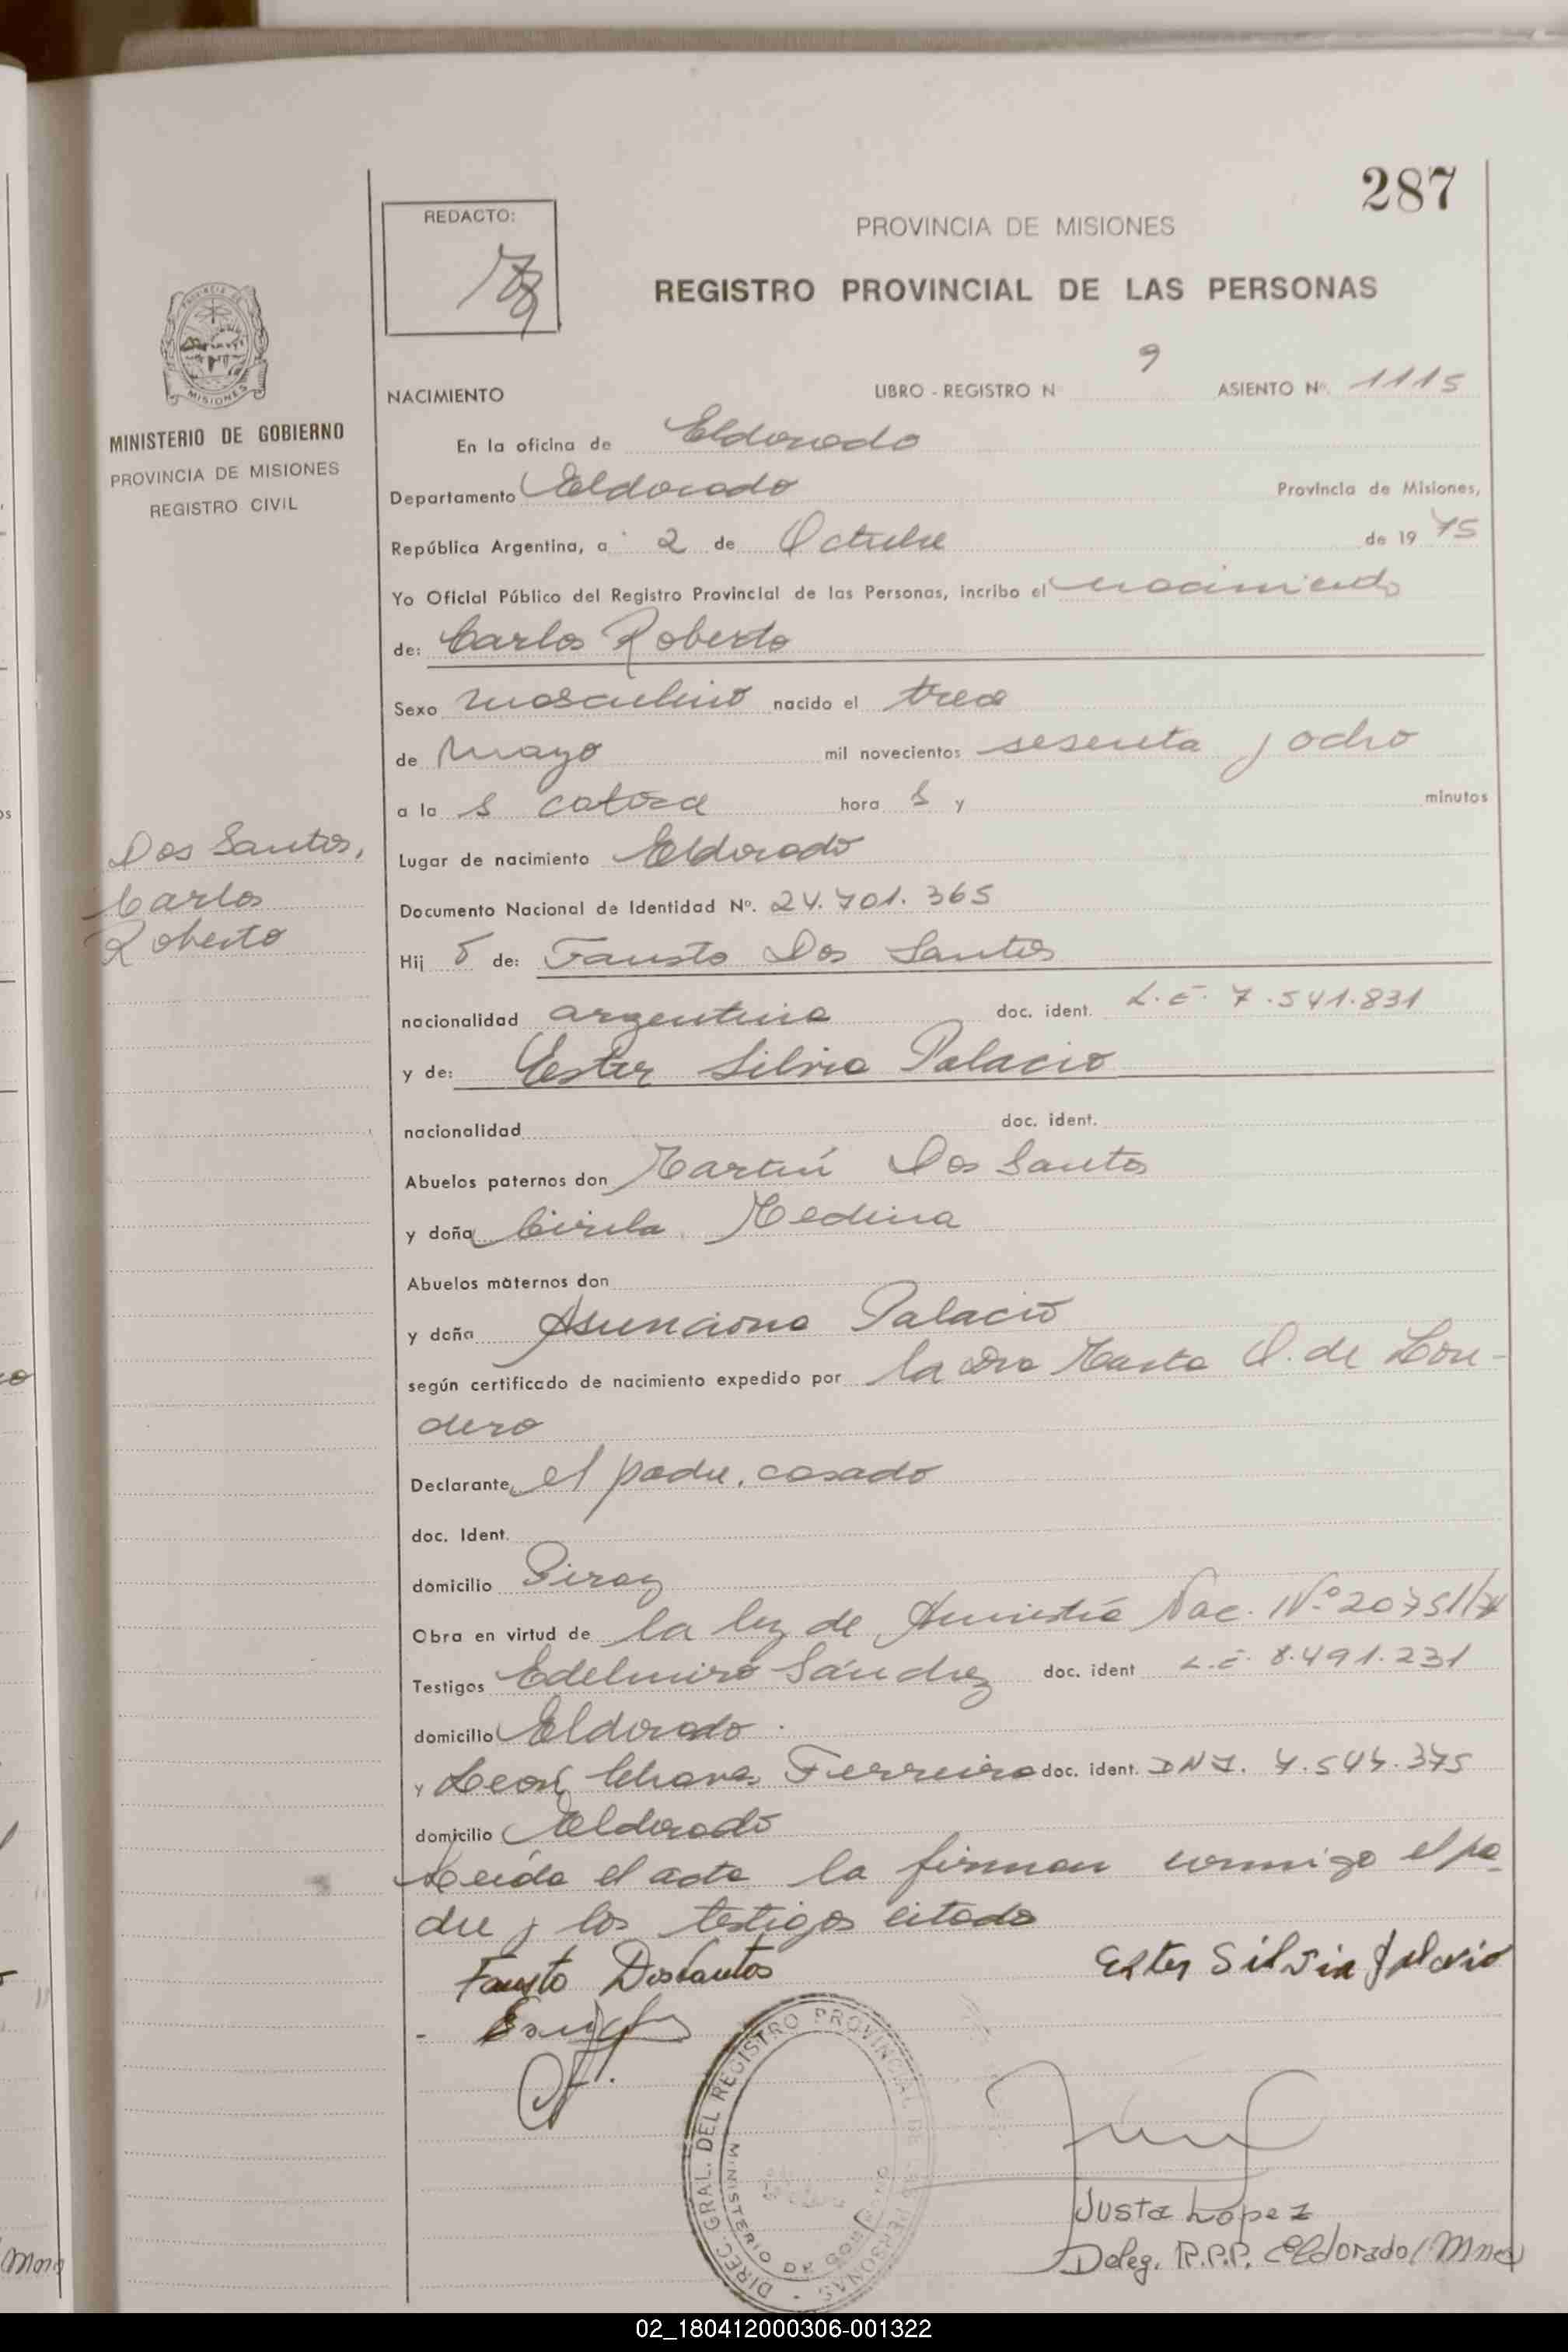 287
REDACTO:
PROVINCIA DE MISIONES
REGISTRO PROVINCIAL DE LAS PERSONAS
MINISTERIO DE GOBIERNO
PROVINCIA DE MISIONES
REGISTRO CIVIL
NACIMIENTO LIBRO - REGISTRO N 9 ASIENTO Nº. 1115
En la oficina de Eldorado
Departamento Eldorado Provincia de Misiones,
República Argentina, a 2 de Octubre de 19 75
Yo Oficial Público del Registro Provincial de las Personas, incribo el nacimiento
de: Carlos Roberto
Sexo masculino nacido el tres
de Mayo mil novecientos sesenta y ocho
a la s catorce hora s y minutos
Dos Santos,
Carlos
Roberto
Lugar de nacimiento Eldorado
Documento Nacional de Identidad Nº. 24.701.365
Hij o de: Fausto Dos Santos
nacionalidad argentina doc. ident. L.E. 7.541.831
y de: Ester Silvia Palacio
nacionalidad doc. ident.
Abuelos paternos don Martín Dos Santos
y doña Cirila Medina
Abuelos maternos don
y doña Asunciona Palacio
según certificado de nacimiento expedido por la Dra Marta O. de Lon-
dero
Declarante, el padre, casado
doc. Ident.
domicilio Piray
Obra en virtud de la ley de Amnistía Nac. Nº 20751/74
Testigos Edelmiro Sánchez doc. ident L.E. 8.491.231
domicilio Eldorado
y León Chaves Ferreira doc. ident. DNI. 7.544.375
domicilio Eldorado
Leída el acta la firman conmigo el pa-
dre y los testigos citado
Fausto Dosantos Ester Silvia Palacio
DIREC. GRAL. DEL REGISTRO PROVINCIAL DE LAS PERSONAS
MINISTERIO DE GOBIERNO
Justa López
Deleg. R.P.P. Eldorado/Mnes
02_180412000306-001322